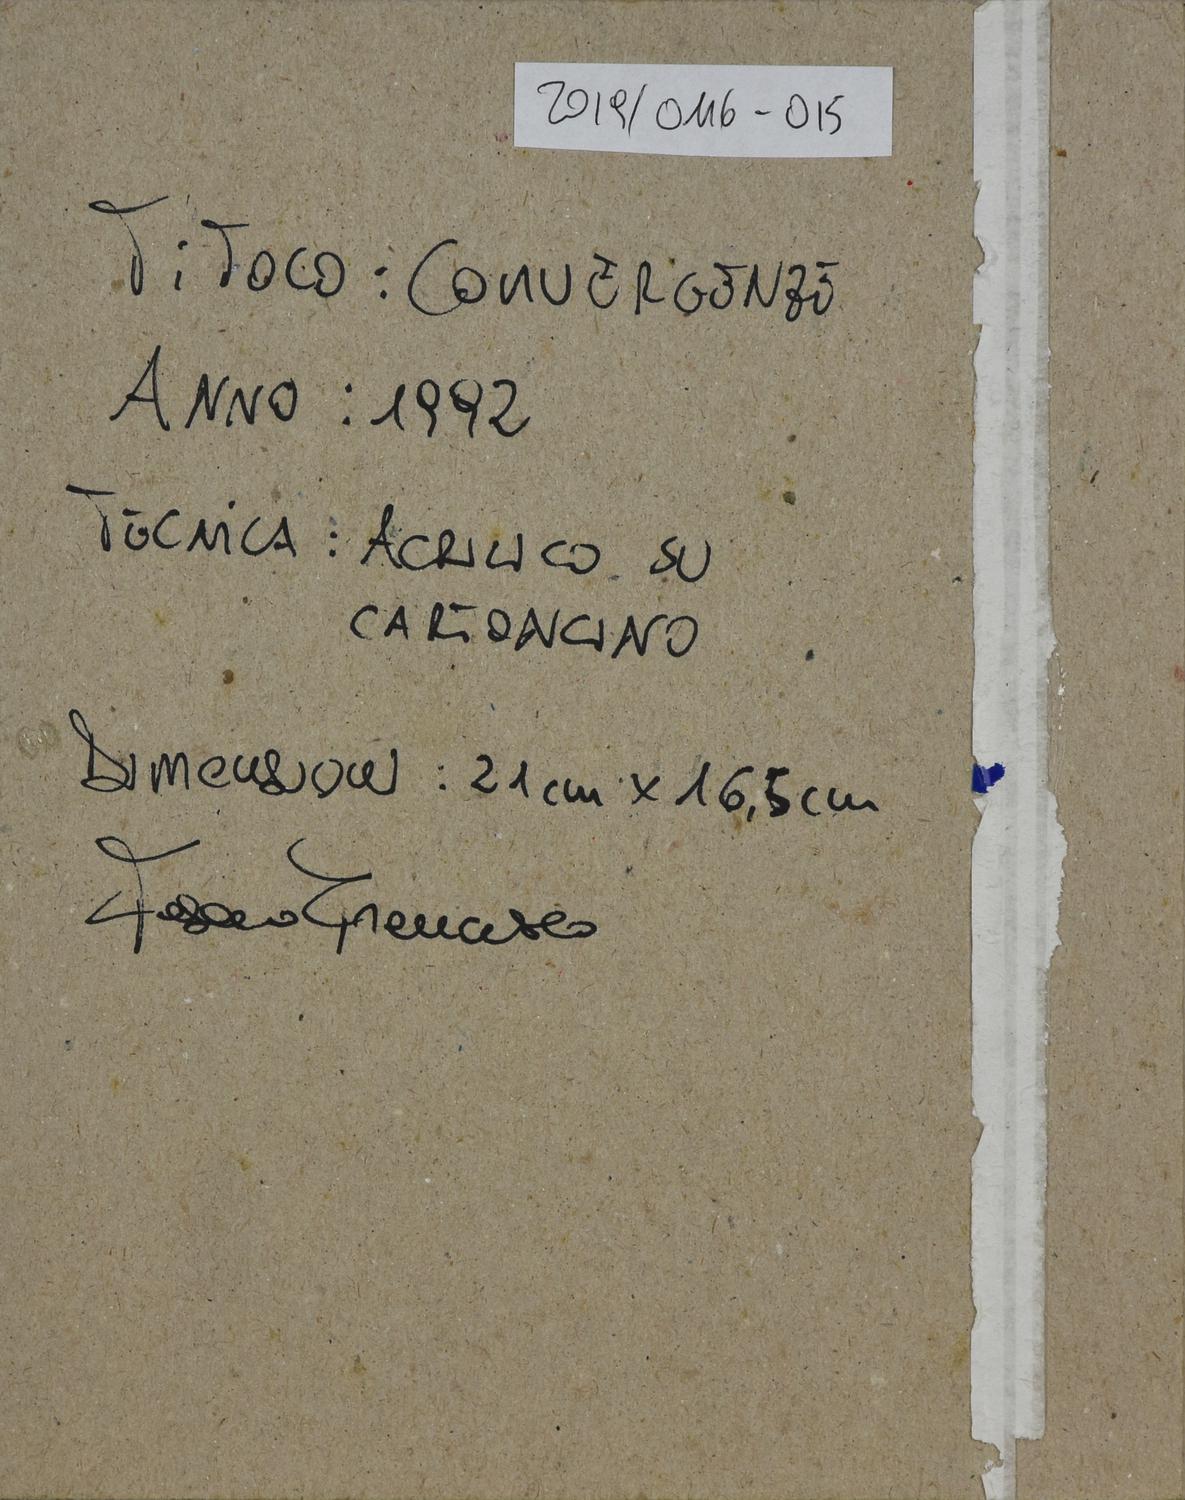 2019/0116-015
TiTOLO: CONVERGENZE
ANNO: 1992
TECNICA: ACRILICO SU
CARTONCINO
DIMENSIONI: 21cm x 16,5cm
Francesco